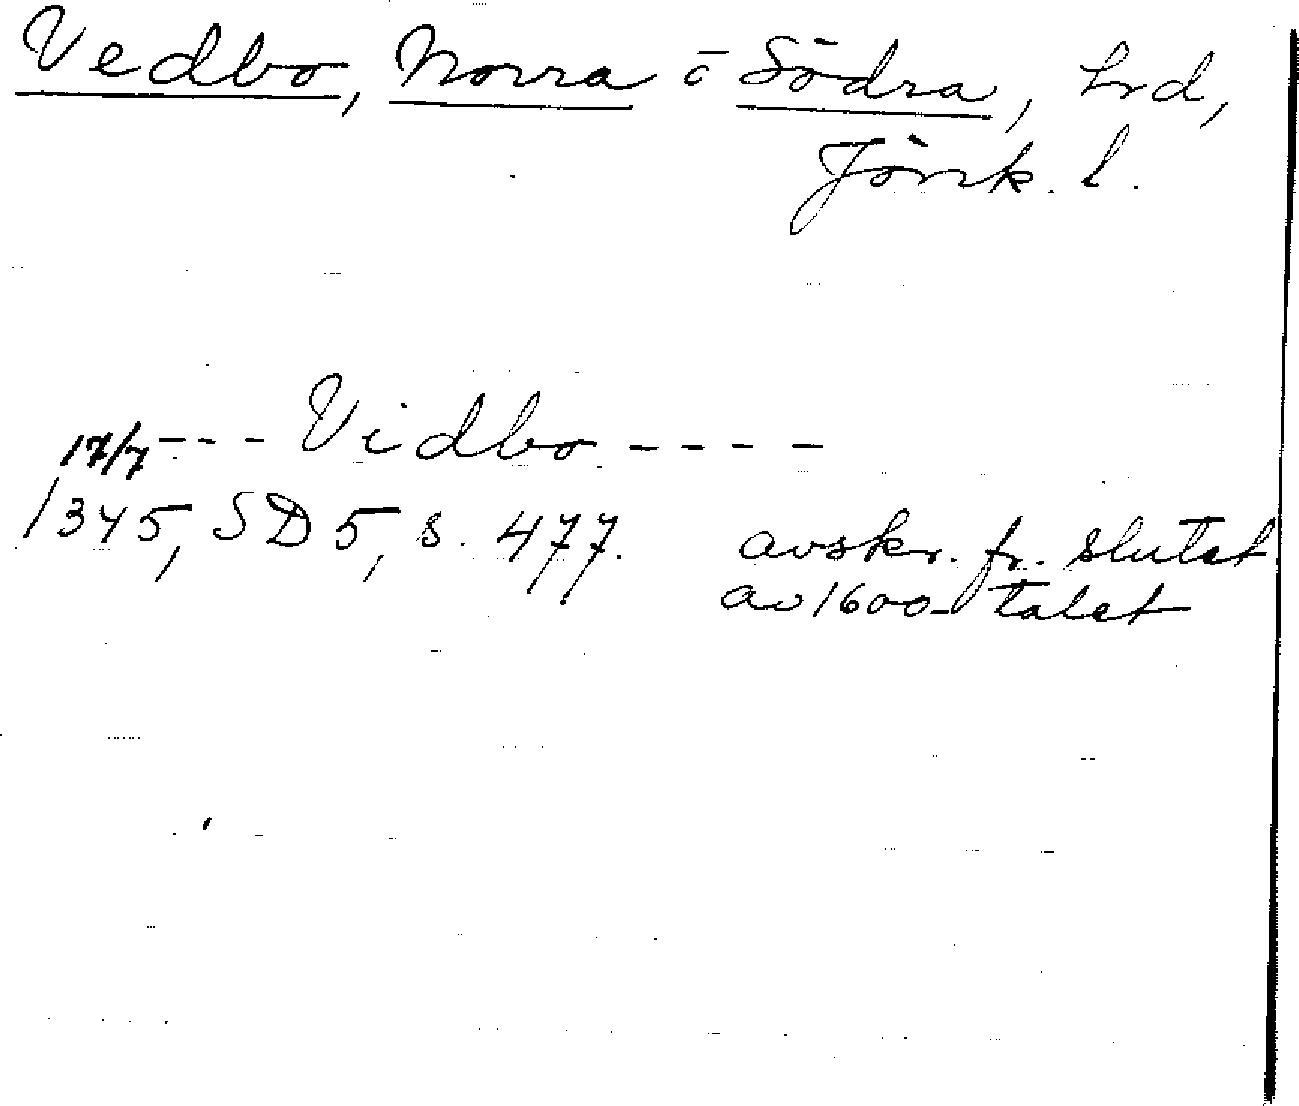 Vedbo, Norra o Södra, hrd,
Jönk. l.
17/7 --- Vidbo ----
1345, SD 5, s. 477. avskr. fr. slutet
av 1600-talet